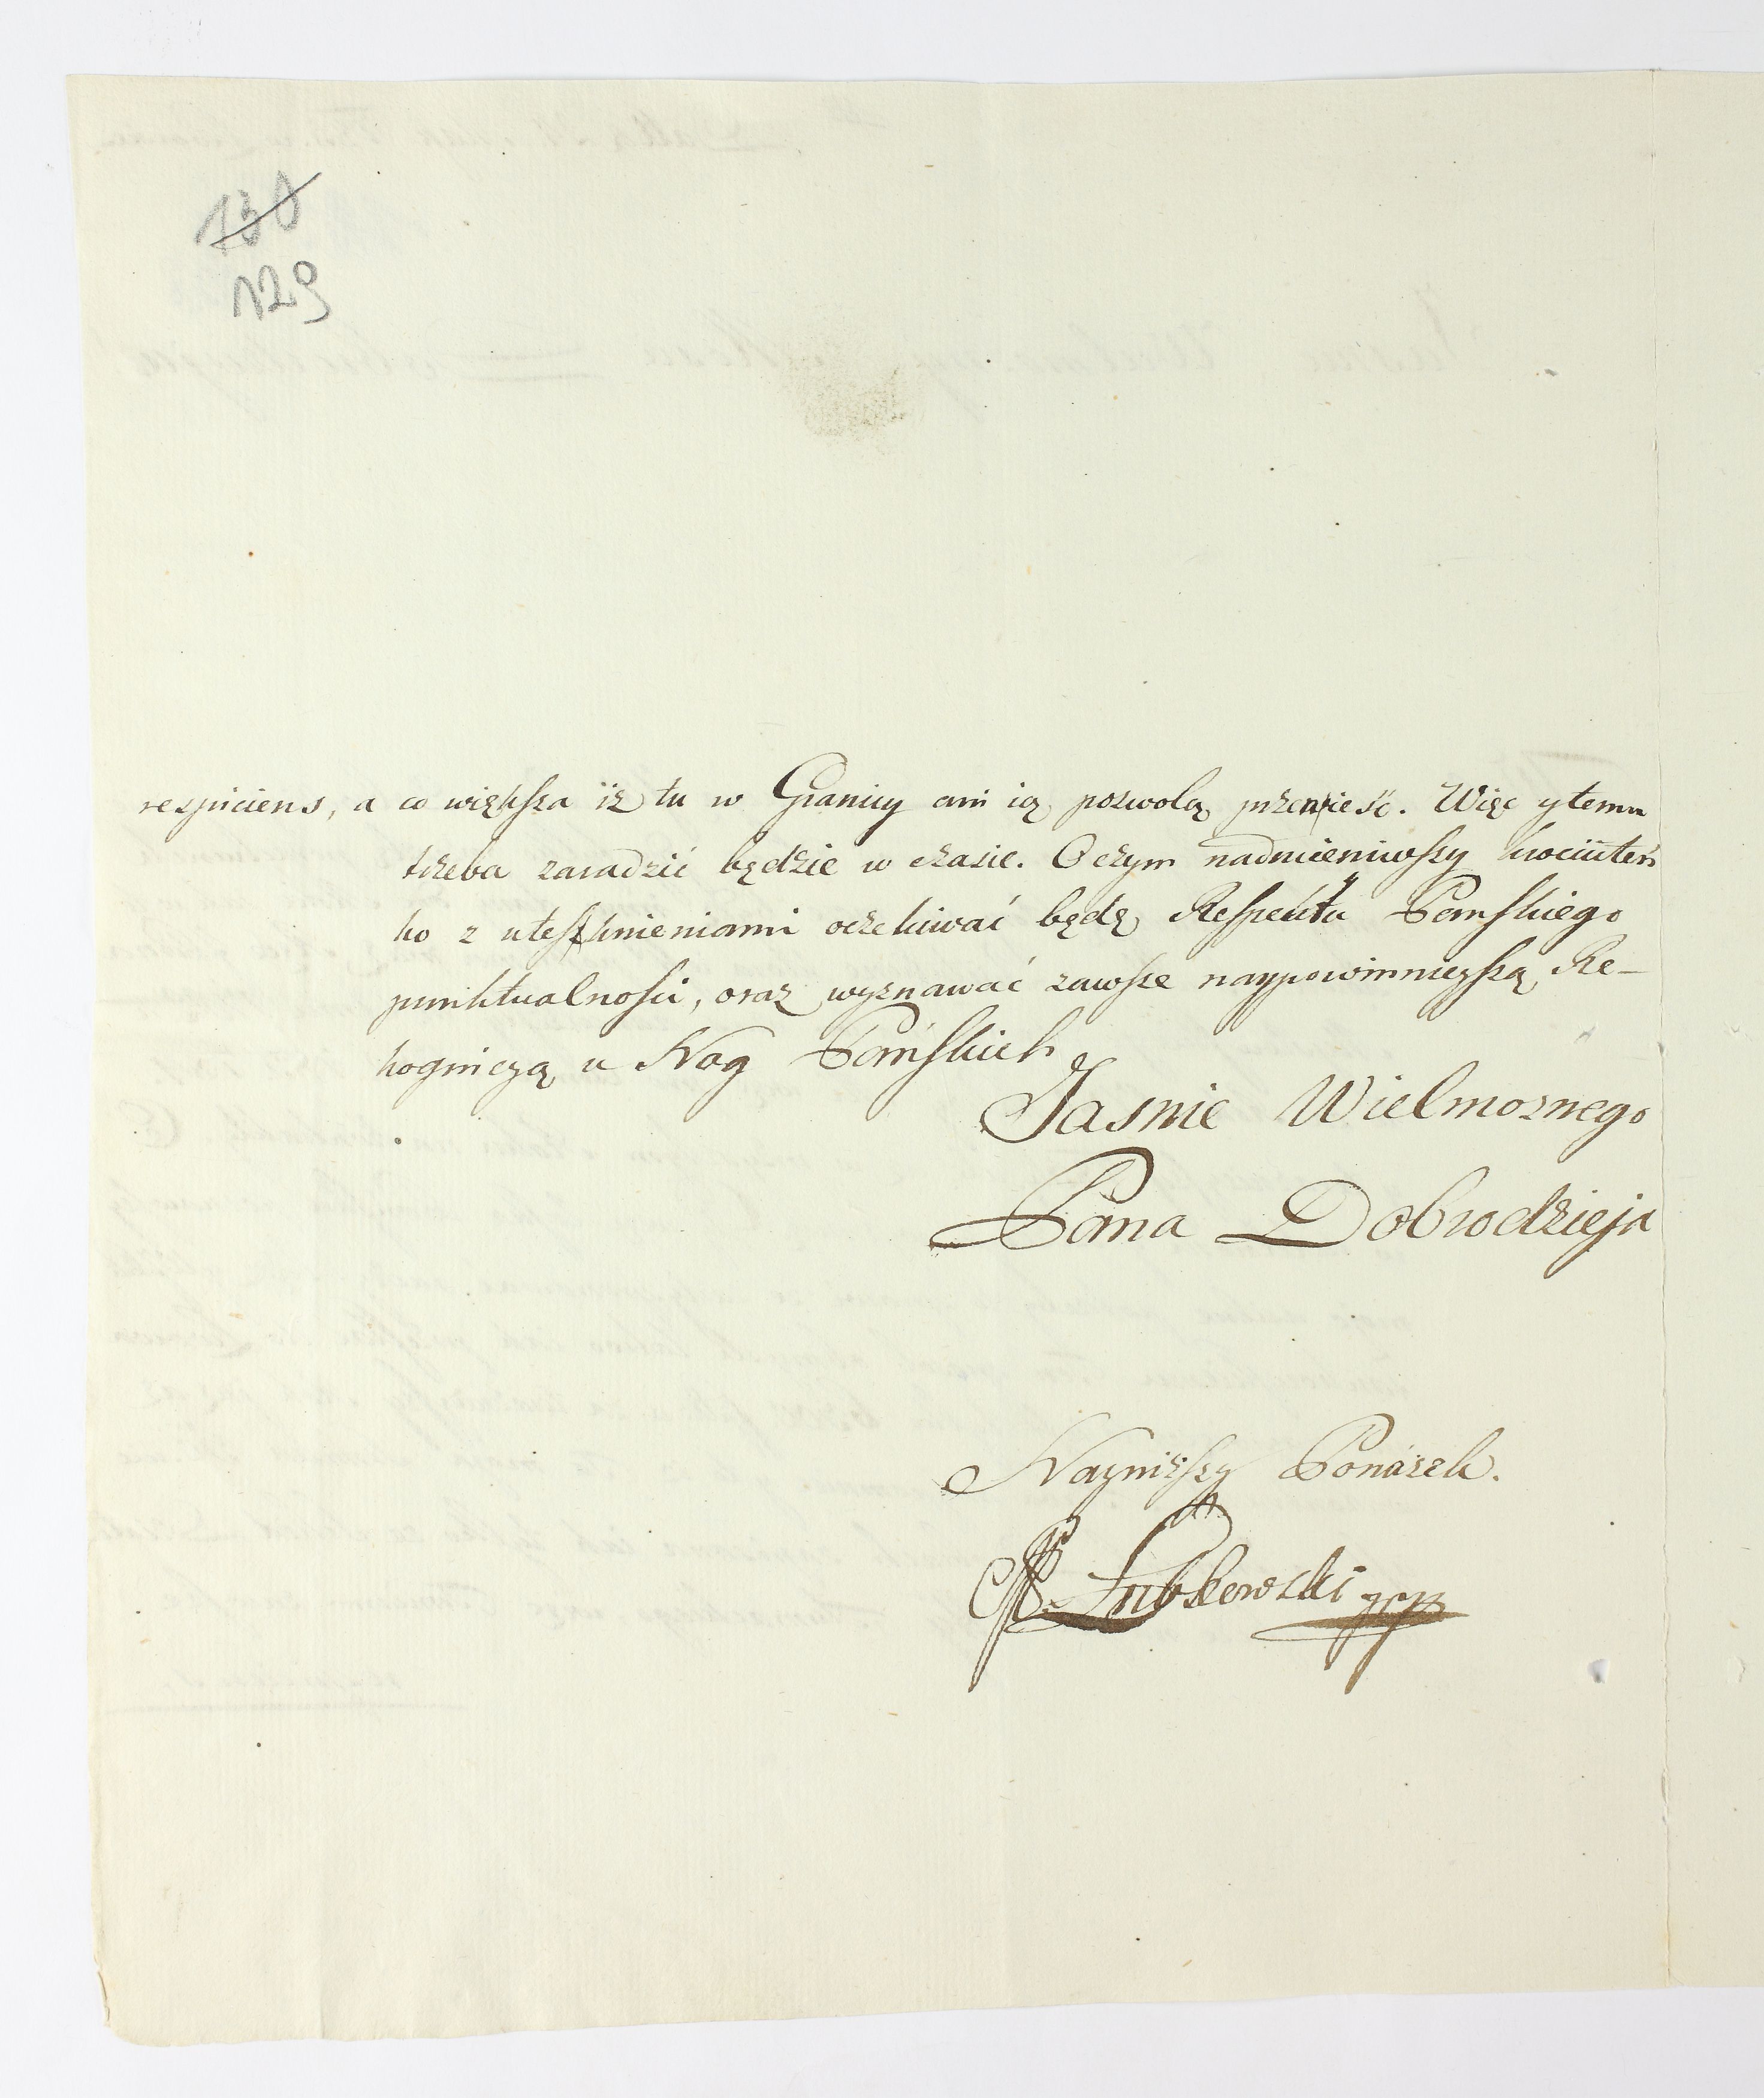 130
129
respiciens, a co większa iż tu w Granicy ani ią pozwolą przenieść. Więc y temu
trzeba zaradzić będzie w czasie. O czym nadmieniwszy krociuteń
ko z utesknieniami oczekiwać będę Respektu Pańskiego
punktualności, oraz wyznawać zawsze naypowinnieyszą Re-
kogniczą u Nog Pańskich
Jasnie Wielmoznego
Pana Dobrodzieja
Nayniższy Ponażek.
Łubkowski